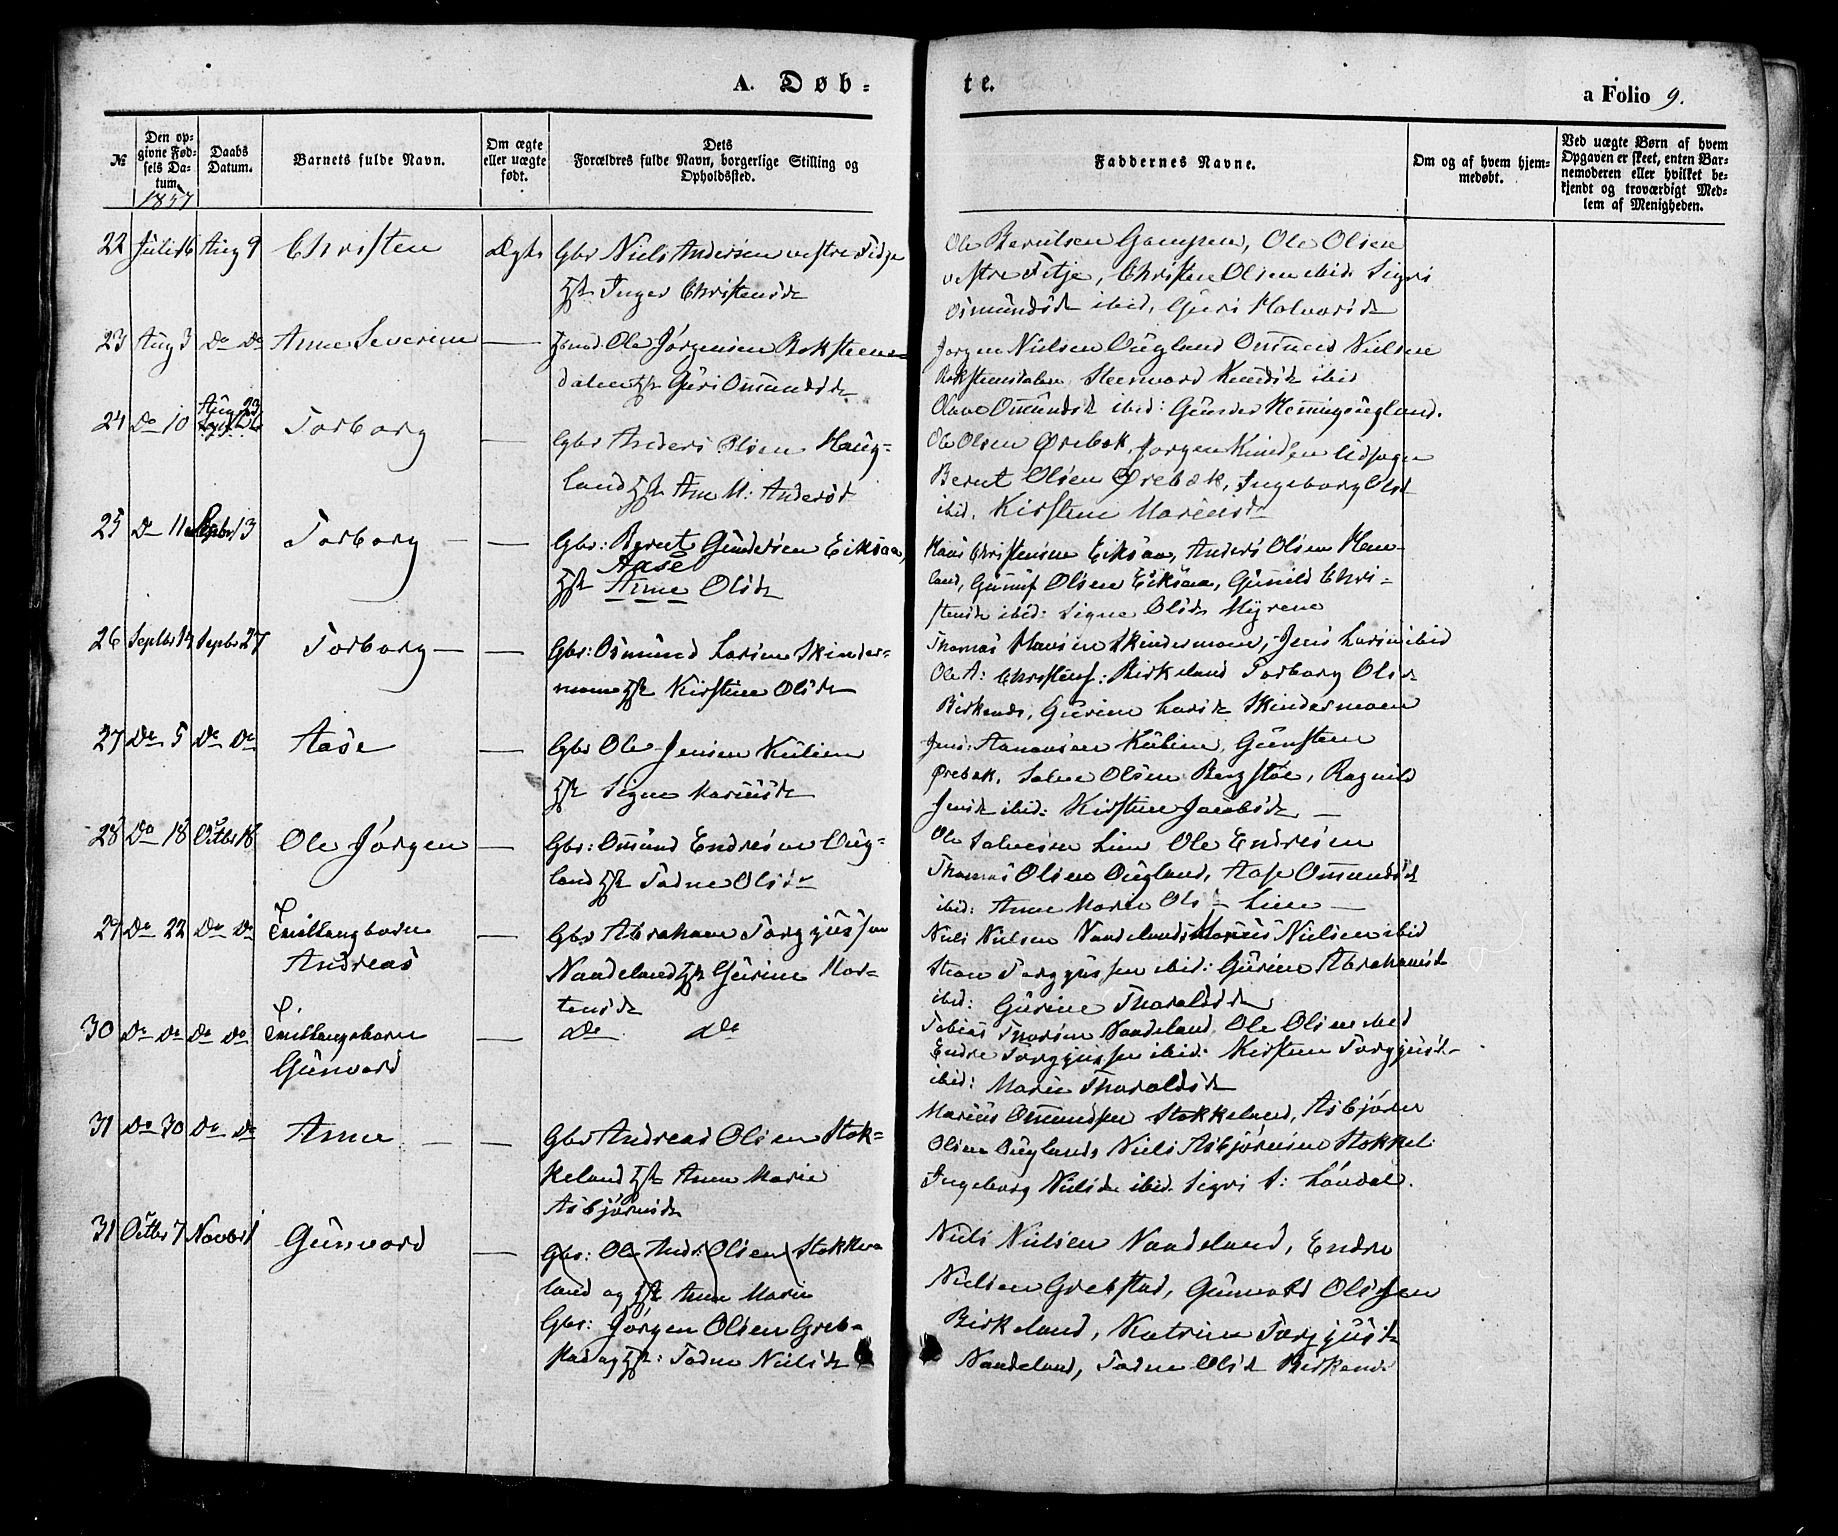 A. Døb-
te.
a Folio 9.
№
Den op-
givne Fød-
sels Da-
tum.
1857
Daabs
Datum.
Barnets fulde Navn.
Om ægte
eller uægte
født.
Dets
Forældres fulde Navn, borgerlige Stilling og
Opholdssted.
Faddernes Navne.
Om og af hvem hjem-
medøbt.
Ved uægte Børn af hvem
Opgaven er skeet, enten Bar-
nemoderen eller hvilket be-
kjendt og troværdigt Med-
lem af Menigheden.
22 Juli 16 Aug 9 Christen Ægte Gbr Niels Andersen vestre Fidje
Hst. Inger Christensdt
Ole Berntsen Ole Olsen
vestre Fitje, Christen Olsen ibid. Sigri
Osmundsdt ibid, Guri Halvorsdt
23 Aug 3 Do Do Anne Severine — Ole Jørgensen Roksteens-
dalen Hst Guri Omundsdt
Jørgen Nielsen Øugland Omund Nielsen
Roksteensdalen, Steenvord Knudsdt ibid
Olave Omundsdt ibid: Gunder
24 Do 10 Aug 23 Torborg — Gbr Anders Olsen Haug-
land Hst Ane M: Andersdt
Ole Olsen Ørebek, Jørgen
Bernt Olsen Ørebæk, Ingeborg Olsd
ibid. Kirstine
25 Do 11 Septbr 13 Torborg — — Gbr: Bernt Gundersen Eiksaa,
Aase
Hst Anne Olsdt
Hans Christensen Eiksaa, Anders Olsen Hau-
land, Gunuf Olsen Eiksaa, Gunild Chri-
stensdt ibid: Signe Olsdt Myrene
26 Septbr 14 Septbr 27 Torborg — — Gbr: Osmund Larsen Skinder-
moen Hst Kirstine Olsdt
Thomas Hansen Skindermoen, Jens Larsen ibid
Ole A: Christens: Birkeland Torborg Olsdt
Birkends, Gurine Larsdt Skindermoen
27 Do 5 Do Do Aase — Gbr Ole Jensen Kulien
Hst Signe
Jens Aanonsen Kulien, Gunsten
Ørebek, Salve Olsen Bergstøe, Ragnild
Jensdt ibid: Kirstine Jacobsdt —
28 Do 18 Octbr 18 Ole Jørgen — Gbr: Omund Endresen Øug-
land Hst Tadne Olsdt
Ole Salvesen Lien Ole Endresen
Thomas Olsen Øugland, Aase Omundsdt
ibid: Anne Marie Ols — Lien —
29 Do 22 Do Do Tvillingbarn
Andreas — Gbr Abraham Torgjussen
Naadeland Hst Gurine Mor-
tensdt
Niels Nielsen Naadeland Marius Nielsen ibid
Torgjussen ibid: Gurine Abrahamsdt
ibid: Gurine Tharaldsdt
30 Do Do Do Do Tvillingsbarn
Gunvord — Do Do
Tobias Thorsen Naadeland, Ole Olsen ibid
Endre Torgjussen ibid: Kirsten Torgjusdt
ibid: Marie Tharaldsdt
31 Do 30 Do Do Anne — — Gbr Andreas Olsen Stok-
keland Hst Anne Marie
Asbjørnsdt
Marius Omundsen Stokkeland, Asbjørn
Olsen Øuglands Niels Asbjørnsen Stokkel:
Ingeborg Nielsdt ibid. Sigri S: Løndal.
31 Octbr 7 Novbr 1 Gunvord — Gbr: Ole Andr: Olsen Stokke-
land og Hst Anne Marie
Gbr: Jørgen Olsen Greb-
stad og Hst: Tadne Nielsdt
Niels Nielsen Naadeland, Endre
Nielsen Grebstad, Gunvald Olsen
Birkeland, Katrine Torgjusdt
Naadeland, Tadne Olsdt Birkend: